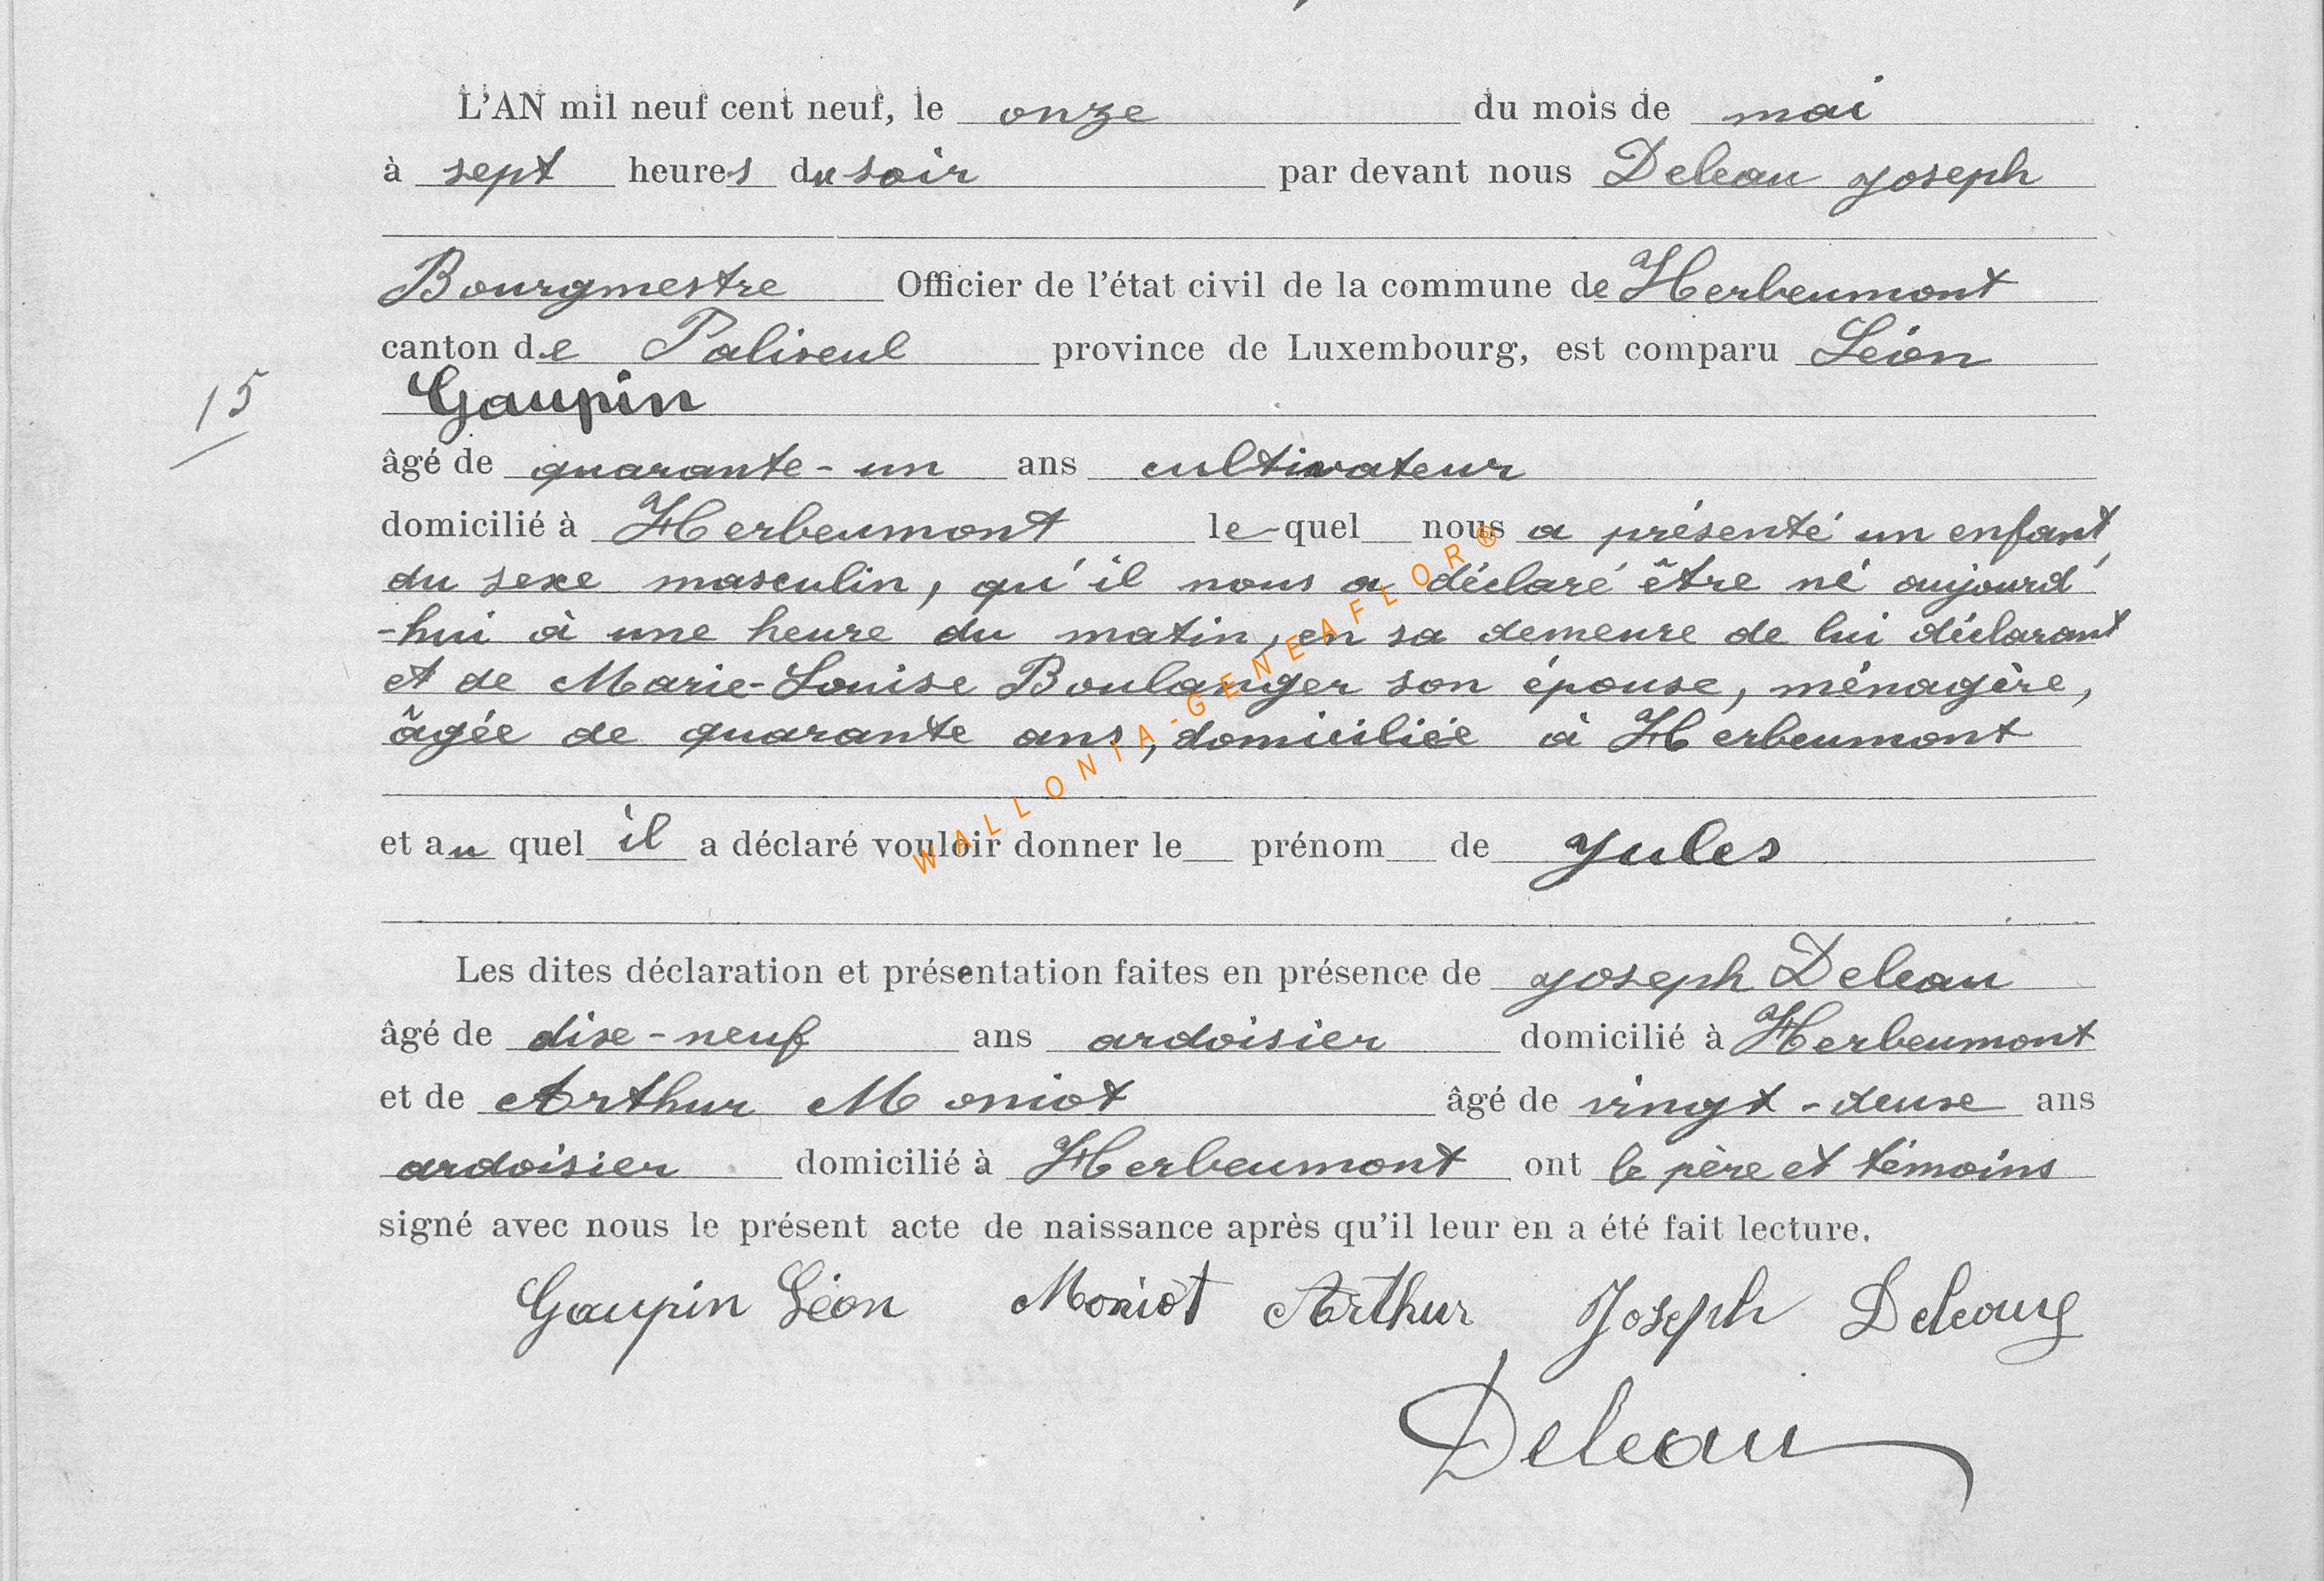 L'AN mil neuf cent neuf, le onze du mois de mai
à sept heures du soir par devant nous Deleau Joseph
Bourgmestre Officier de l'état civil de la commune de Herbeumont
canton de Paliseul province de Luxembourg, est comparu Léon
15
Gaupin
âgé de quarante-un ans cultivateur
domicilié à Herbeumont le-quel nous a présenté un enfant,
du sexe masculin, qu'il nous a déclaré être né aujourd'
-hui à une heure du matin, en sa demeure de lui déclarant
et de Marie-Louise Boulanger son épouse, ménagère,
âgée de quarante ans, domiciliée à Herbeumont
WALLONIA-GENEAFLOR®
et au quel il a déclaré vouloir donner le prénom de Jules
Les dites déclaration et présentation faites en présence de Joseph Deleau
âgé de dixe-neuf ans ardoisier domicilié à Herbeumont
et de Arthur Moniot âgé de vingt-deuxe ans
ardoisier domicilié à Herbeumont ont le père et témoins
signé avec nous le présent acte de naissance après qu'il leur en a été fait lecture.
Gaupin Léon Moniot Arthur Joseph
Deleau